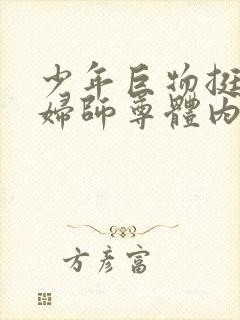 少年巨物挺
婦師尊體內
方彥富